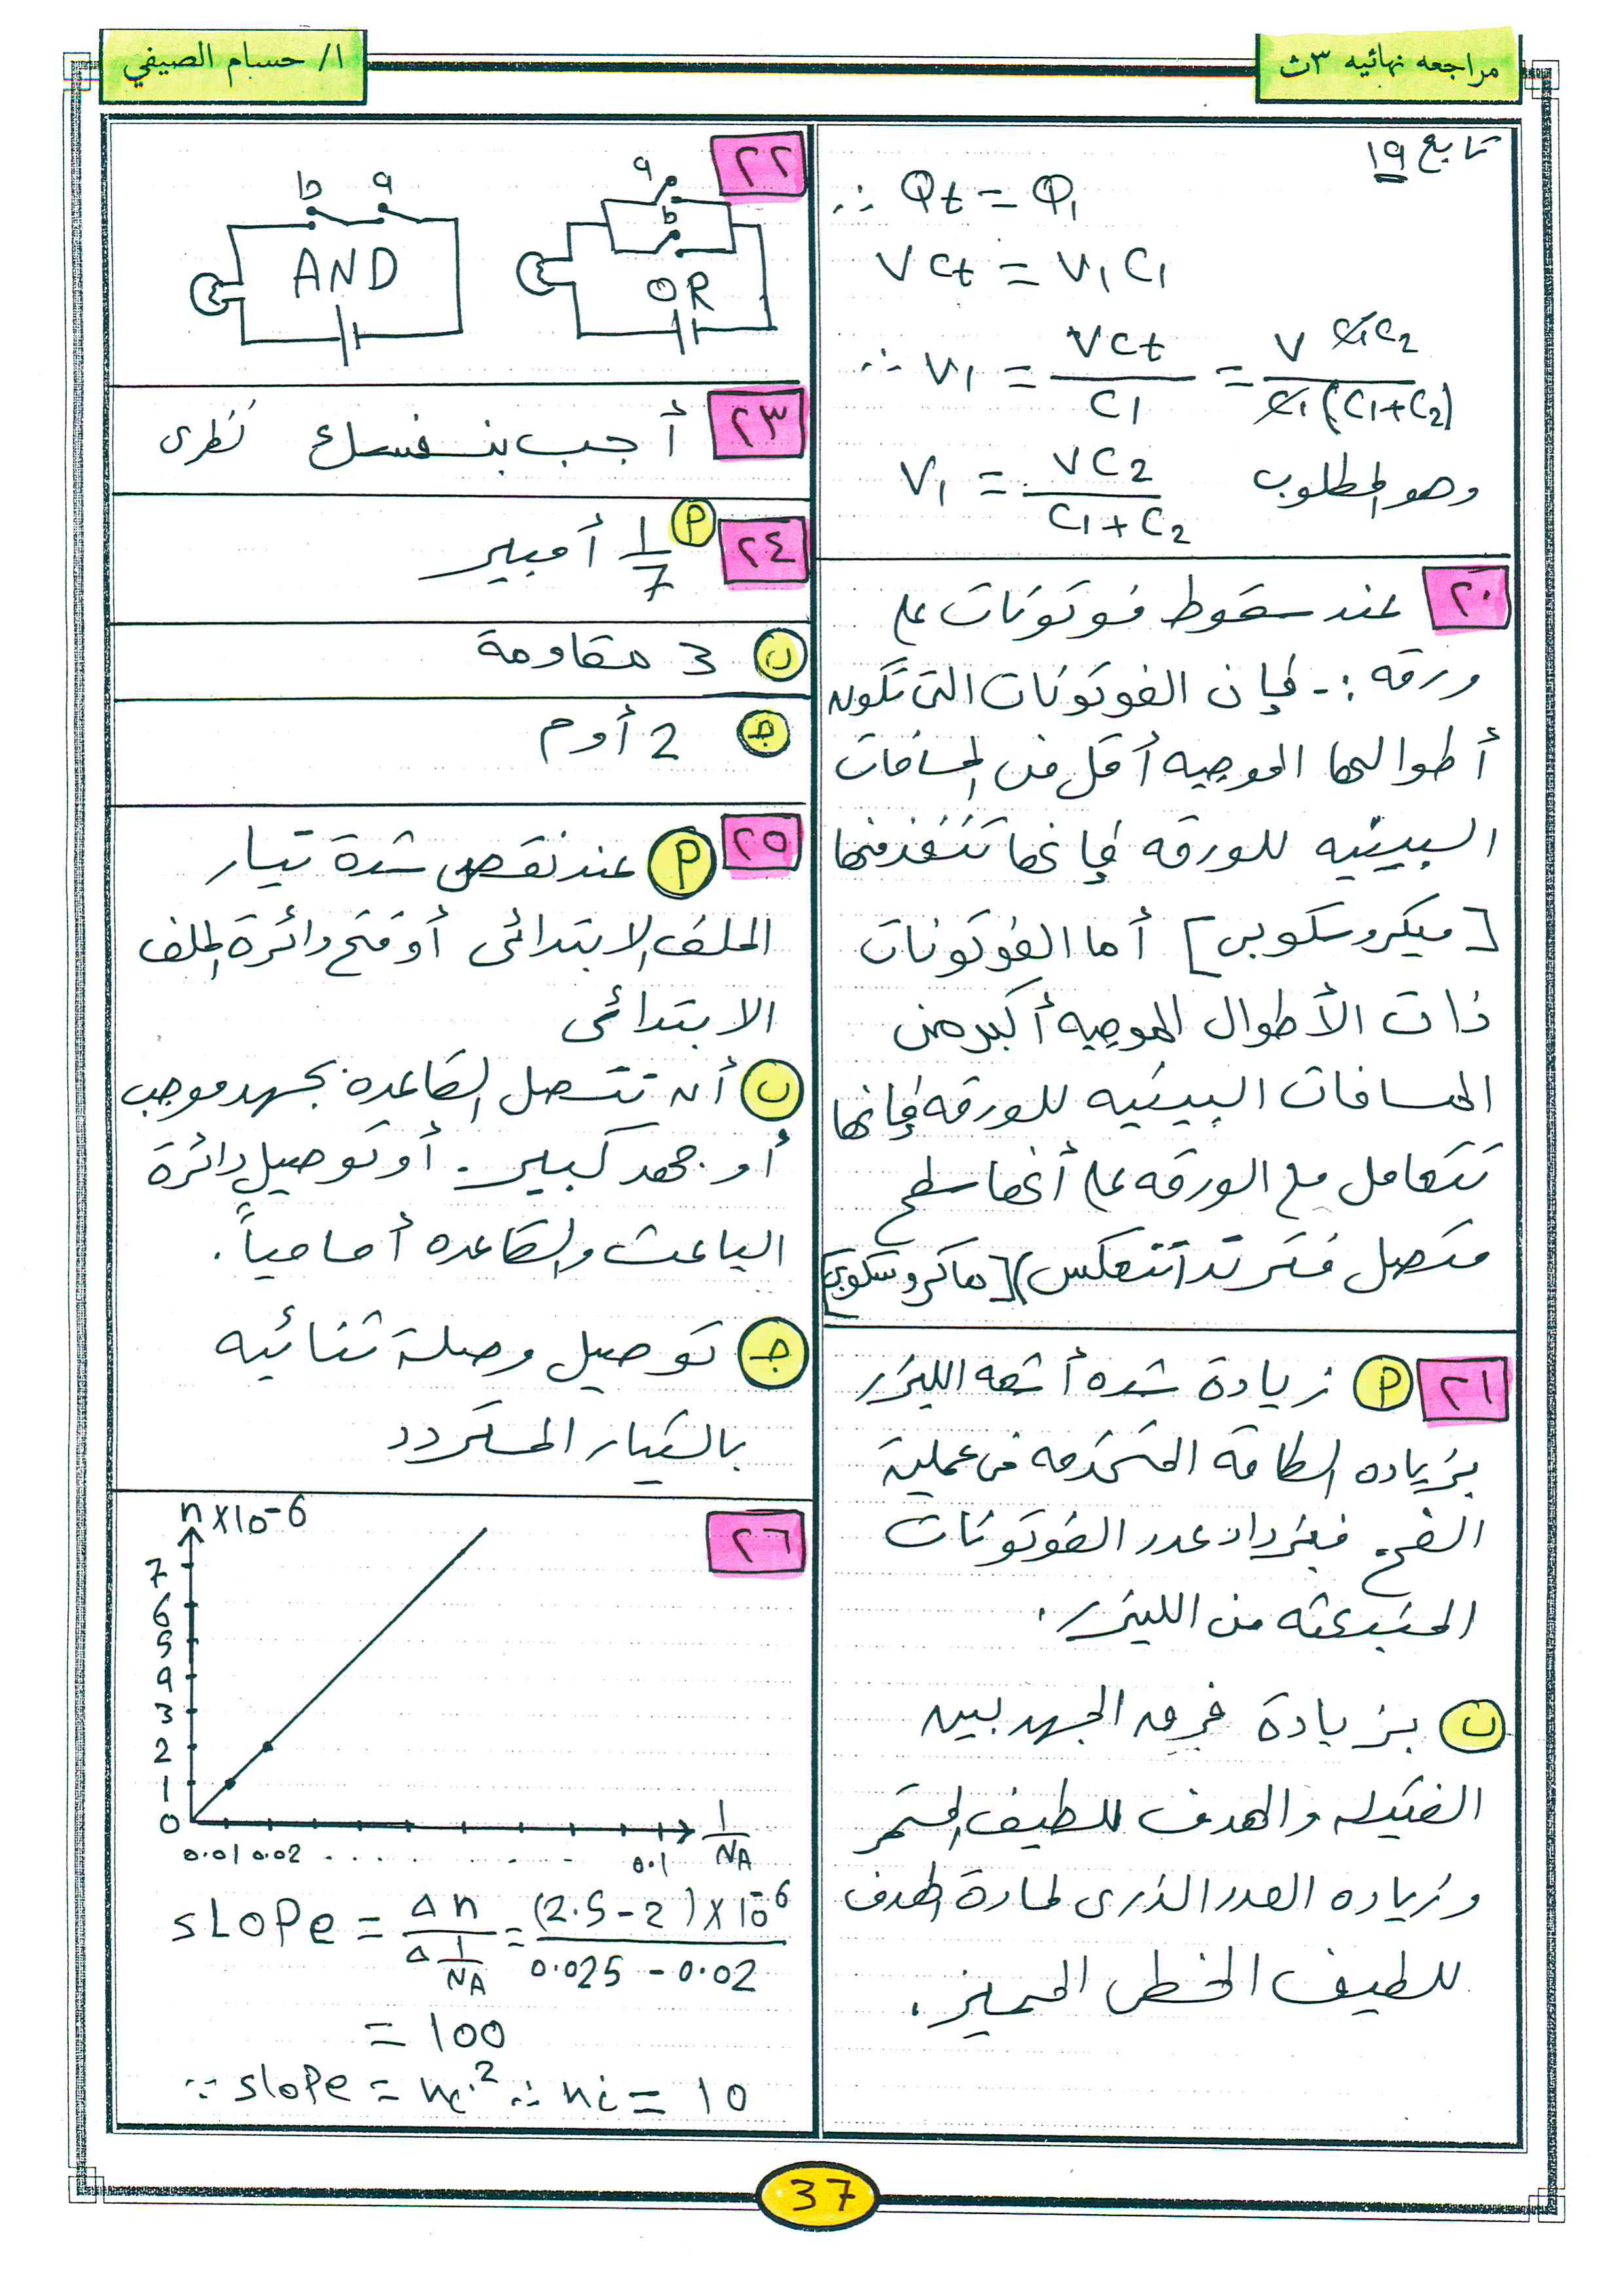 مراجعه نهائيه ٣ث
ا/ حسام الصيفي
تابع ١٩
∴ Φt = Φ1
V Ct = V1 C1
∴ V1 = VCt / C1 = V C1C2 / C1(C1+C2)
V1 = VC2 / C1+C2 وهو المطلوب
٢٠ عند سقوط فوتونات على
ورقه :- فإن الفوتونات التى تكون
أطوالها الموجيه أقل من المسافات
البينيه للورقه فإنها تنفذ منها
[ميكروسكوبى] أما الفوتونات
ذات الأطوال الموجيه أكبر من
المسافات البينيه للورقه فإنها
تتعامل مع الورقه على أنها سطح
متصل فترتد (تنعكس) [ماكروسكوبى]
٢١ P زيادة شده أشعه الليزر
بزياده الطاقة المستخدمه فى عملية
الضخ فيزداد عدد الفوتونات
المنبعثه من الليزر.
ب بزيادة فرق الجهد بين
الفتيله والهدف للطيف المستمر
وزياده العدد الذرى لمادة الهدف
للطيف الخطى المميز.
٢٢
a
b
OR
b a
AND
٢٣ أجب بنفسك نظرى
٢٤ P 1/7 أمبير
ب 3 مقاومة
ج 2 أوم
٢٥ P عند نقص شدة تيار
الملف الابتدائى أو فتح دائرة الملف
الابتدائى
ب أن تتصل القاعده بجهد موجب
أو جهد كبير. أو توصيل دائرة
الباعث والقاعده أماميا.
ج توصيل وصلة ثنائيه
بالتيار المتردد
٢٦
n x10-6
7
6
5
4
3
2
1
0
0.01 0.02 . . . . . . . 0.1 1/NA
slope = Δn / Δ 1/NA = (2.5-2)x10-6 / 0.025 - 0.02
= 100
∵ slope = ni² ∴ ni = 10
37